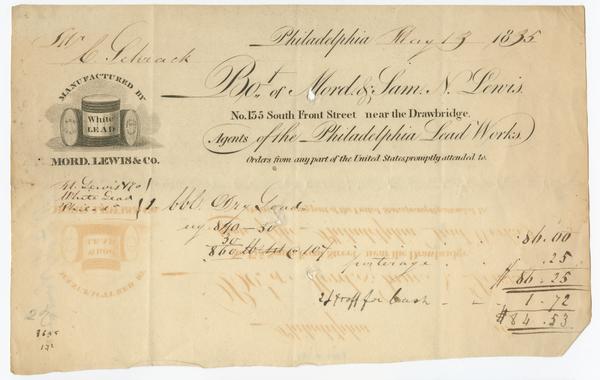 Philadelphia May 13 1835
Mr C. Schrack
Bo.t of Mord. & Sam. N. Lewis.
No. 135 South Front Street near the Drawbridge.
(Agents of the Philadelphia Lead Works.)
Orders from any part of the United States, promptly attended to.
MANUFACTURED BY
White
LEAD
MORD. LEWIS & CO.
M. Lewis & Co
White Lead
Philad
1 bbl Dry Lead
840 - 30
30
86.00
porterage .25
$ 86.25
2 % off for Cash - - 1.72
$ 84.53
8625
172